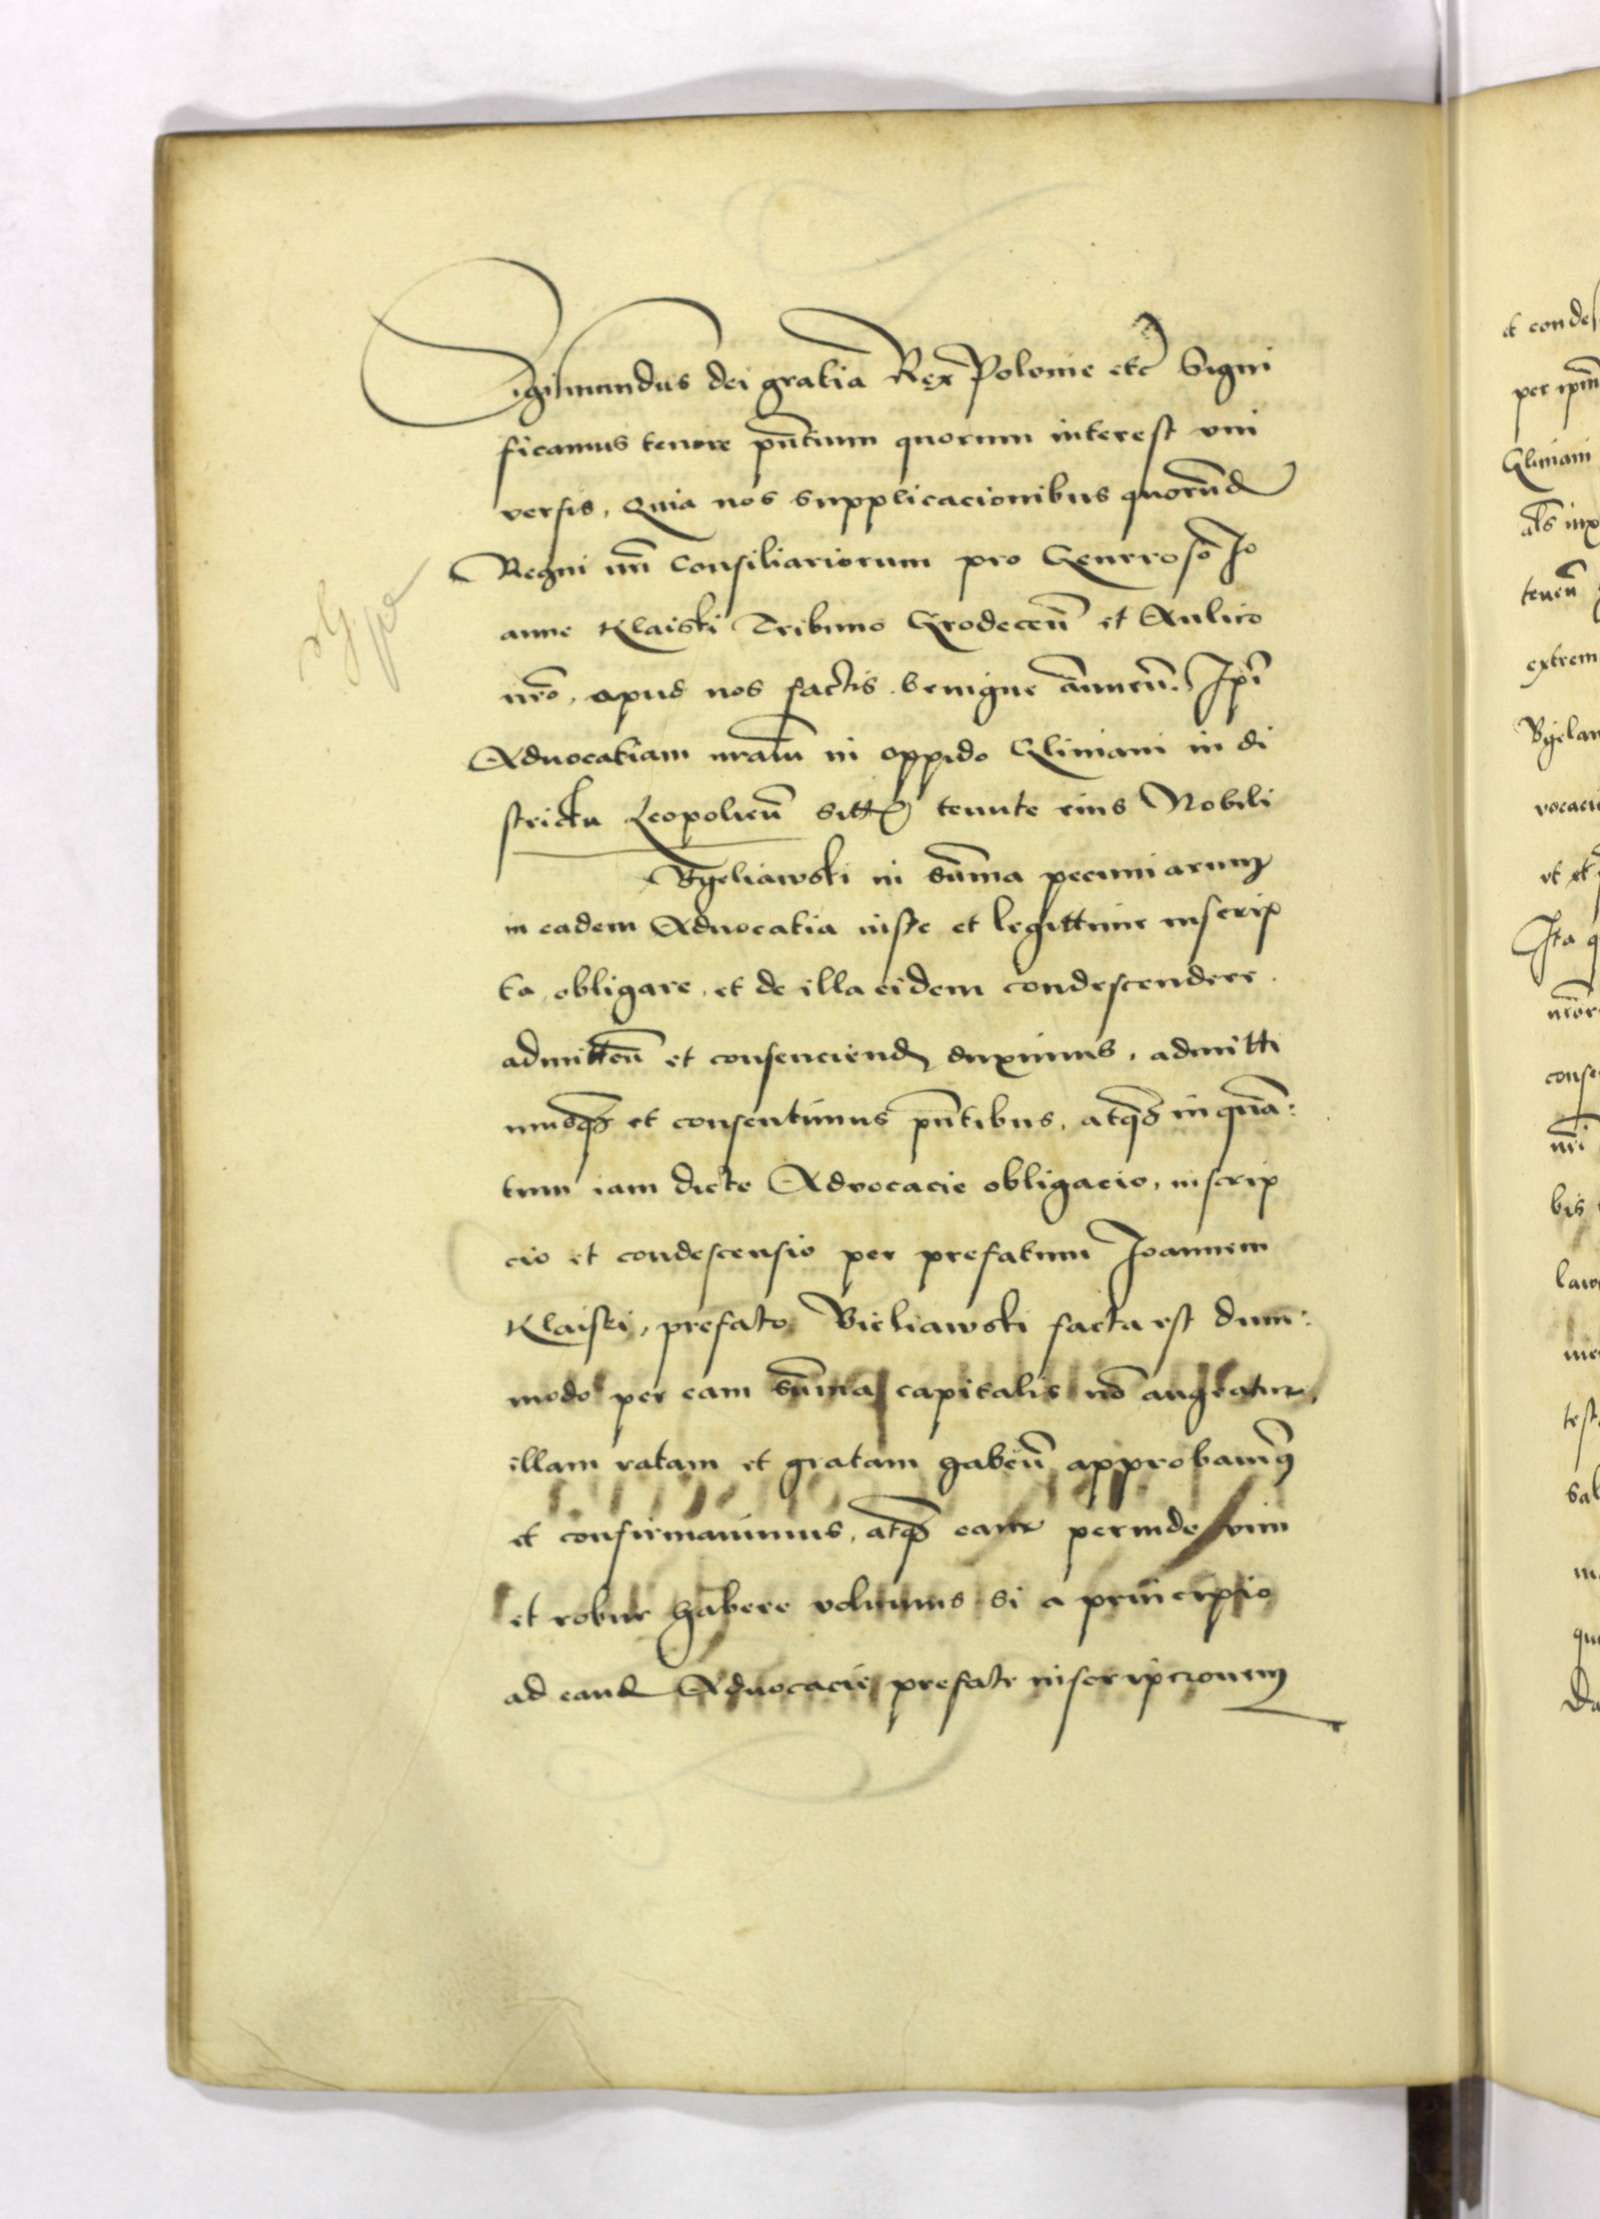 Sigismundus dei gratia Rex Polonie etc Signi
ficamus tenore pñtium quorum interest vni
versis, Quia nos supplicacionibus quorũd
Regni nr̃i Consiliariorum pro Generoso Jo
anne Klaiski Tribuno Grodeceñ et Aulico
nr̃o, apud nos factis benigne ãnueñ. Ip̃i
Aduocatiam nr̃am in oppido Gliniani in di
strictu Leopolieñ sitt tenute eius Nobili
Byeliawski in sũma pecuniarum
in eadem Aduocatia iuste et legittime inscrip
ta, obligare, et de illa eidem condescendere
admitteñ et consenciend duximus, admitti
musq̃ et consentimus pñtibus, atq̃ in quã:
tum iam dicte Advocacie obligacio, inscrip
cio et condescensio per prefatum Joannem
Klaisci, prefato Bieliawski facta est dum:
modo per eam sũma capitalis nõ augeatur,
illam ratam et gratam habeñ approbauim9
et confirmauimus, atq̃ eam perinde vim
et robur habere volumus si a principio
ad eand Aduocacie prefate inscripcionem
et condes
per ip̃m
Gliniani
al̃s
teneñ
extrem
Byelaw
vocacie
Ita q
conse
nr̃i
bis
law
test
sal
qu
Da